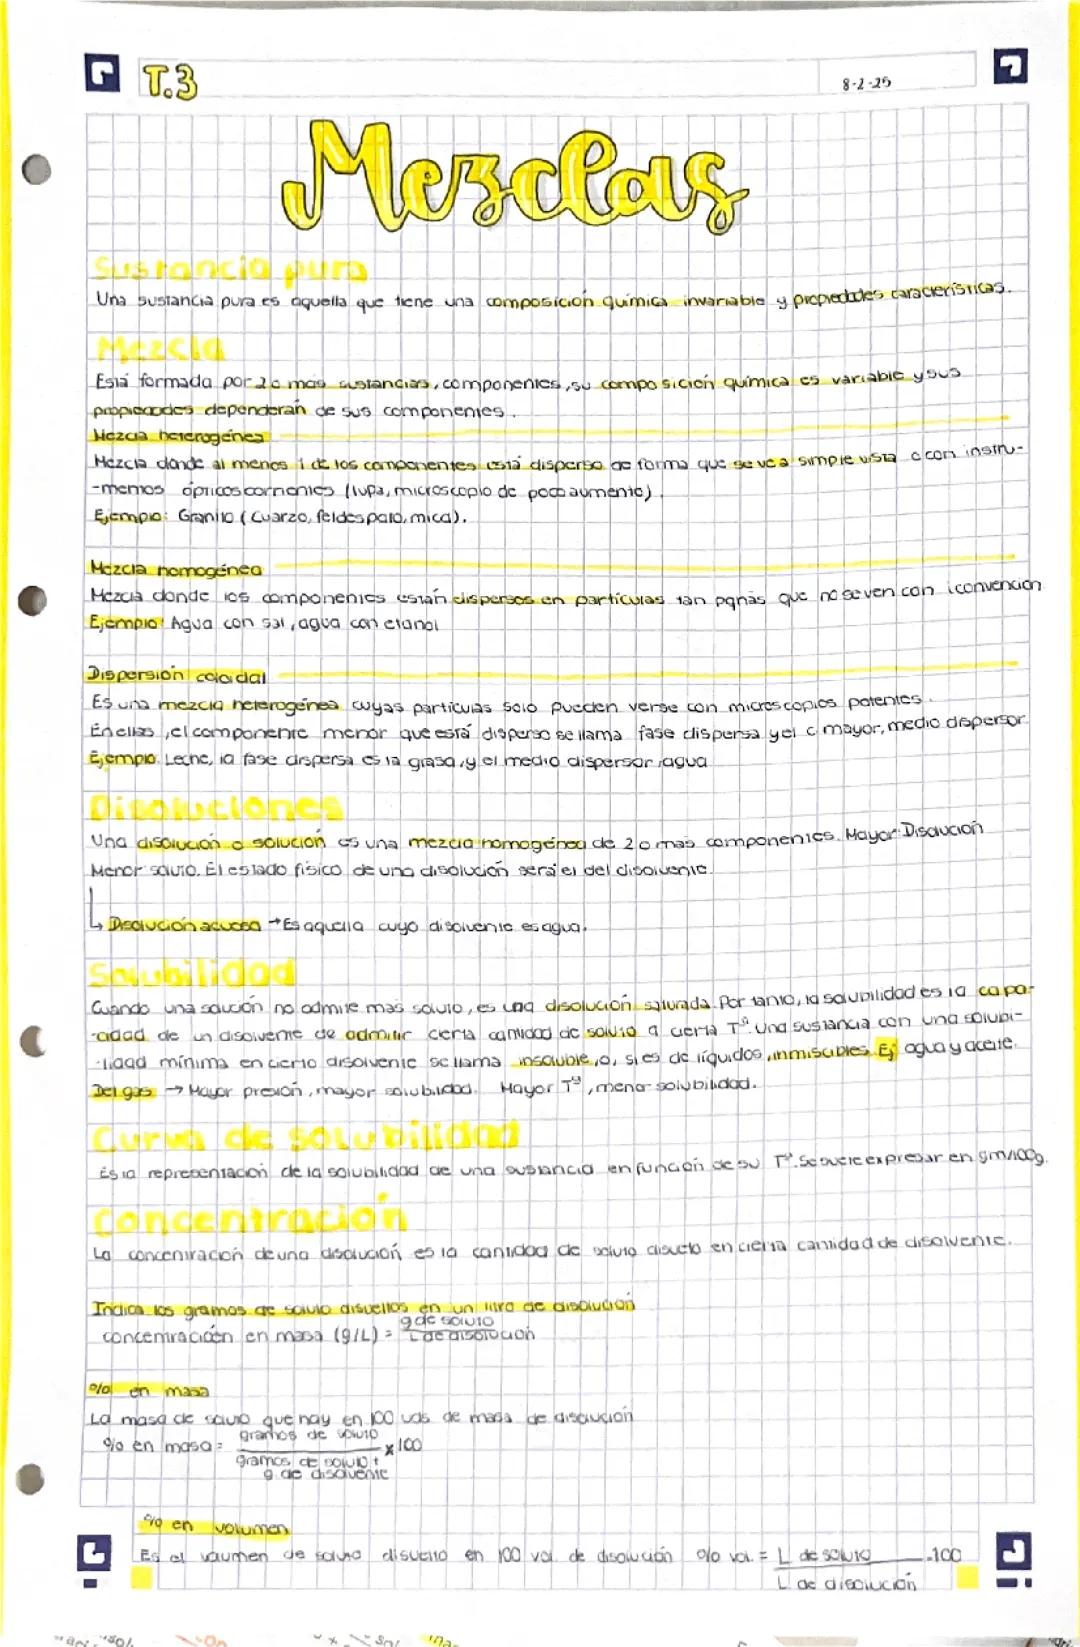 T.3
8-2-25
Mezclas
Sustancia pura
Una sustancia pura es aquella que tiene una composición química invariable y propiedades características.
Mezcla
Está formada por 2 o más sustancias, componentes, su composición química es variable y sus
propiedades dependerán de sus componentes.
Mezcla heterogénea
Mezcla donde al menos 1 de los componentes está disperso de forma que se ve a simple vista o con instru-
-mentos ópticos corrientes (lupa, microscopio de poco aumento).
Ejemplo: Granito (cuarzo, feldespato, mica).
Mezcla homogénea
Mezcla donde los componentes están dispersos en partículas tan pqñas que no se ven con i convencion
Ejemplo: Agua con sal, agua con etanol
Dispersión coloidal
Es una mezcla heterogénea cuyas partículas solo pueden verse con microscopios potentes.
En ellas, el componente menor que está disperso se llama fase dispersa y el c mayor, medio dispersor.
Ejemplo. Leche, la fase dispersa es la grasa, y el medio dispersor, agua
Disoluciones
Una disolución o solución es una mezcla homogénea de 2 o más componentes. Mayor: Disolución
Menor soluto. El estado físico de una disolución será el del disolvente.
↳ Disolución acuosa → Es aquella cuyo disolvente es agua.
Solubilidad
Cuando una solución no admite más soluto, es una disolución saturada. Por tanto, la solubilidad es la capa-
-cidad de un disolvente de admitir cierta cantidad de soluto a cierta Tª. Una sustancia con una solubi-
-lidad mínima en cierto disolvente se llama insoluble, o, si es de líquidos, inmiscibles. Ej agua y aceite.
Del gas → Mayor presión, mayor solubilidad. Mayor Tª, menor solubilidad.
Curva de solubilidad
Es la representación de la solubilidad de una sustancia en función de su Tª. Se suele expresar en gm/100g.
Concentración
La concentración de una disolución es la cantidad de soluto disuelto en cierta cantidad de disolvente.
Indica los gramos de soluto disueltos en un litro de disolución
g de soluto
concentración en masa (g/L) =
L de disolución
% en masa
La masa de soluto que hay en 100 uds de masa de disolución
gramos de soluto
% en masa = x 100
gramos de soluto +
g. de disolvente
% en volumen
Es el volumen de soluto disuelto en 100 vol. de disolución % vol. = L de soluto .100
L de disolución